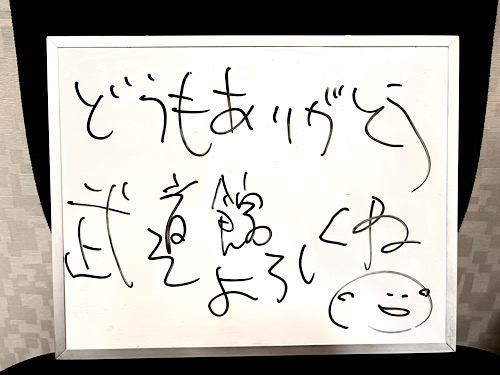 どうもありがとう
武道館
よろしくね